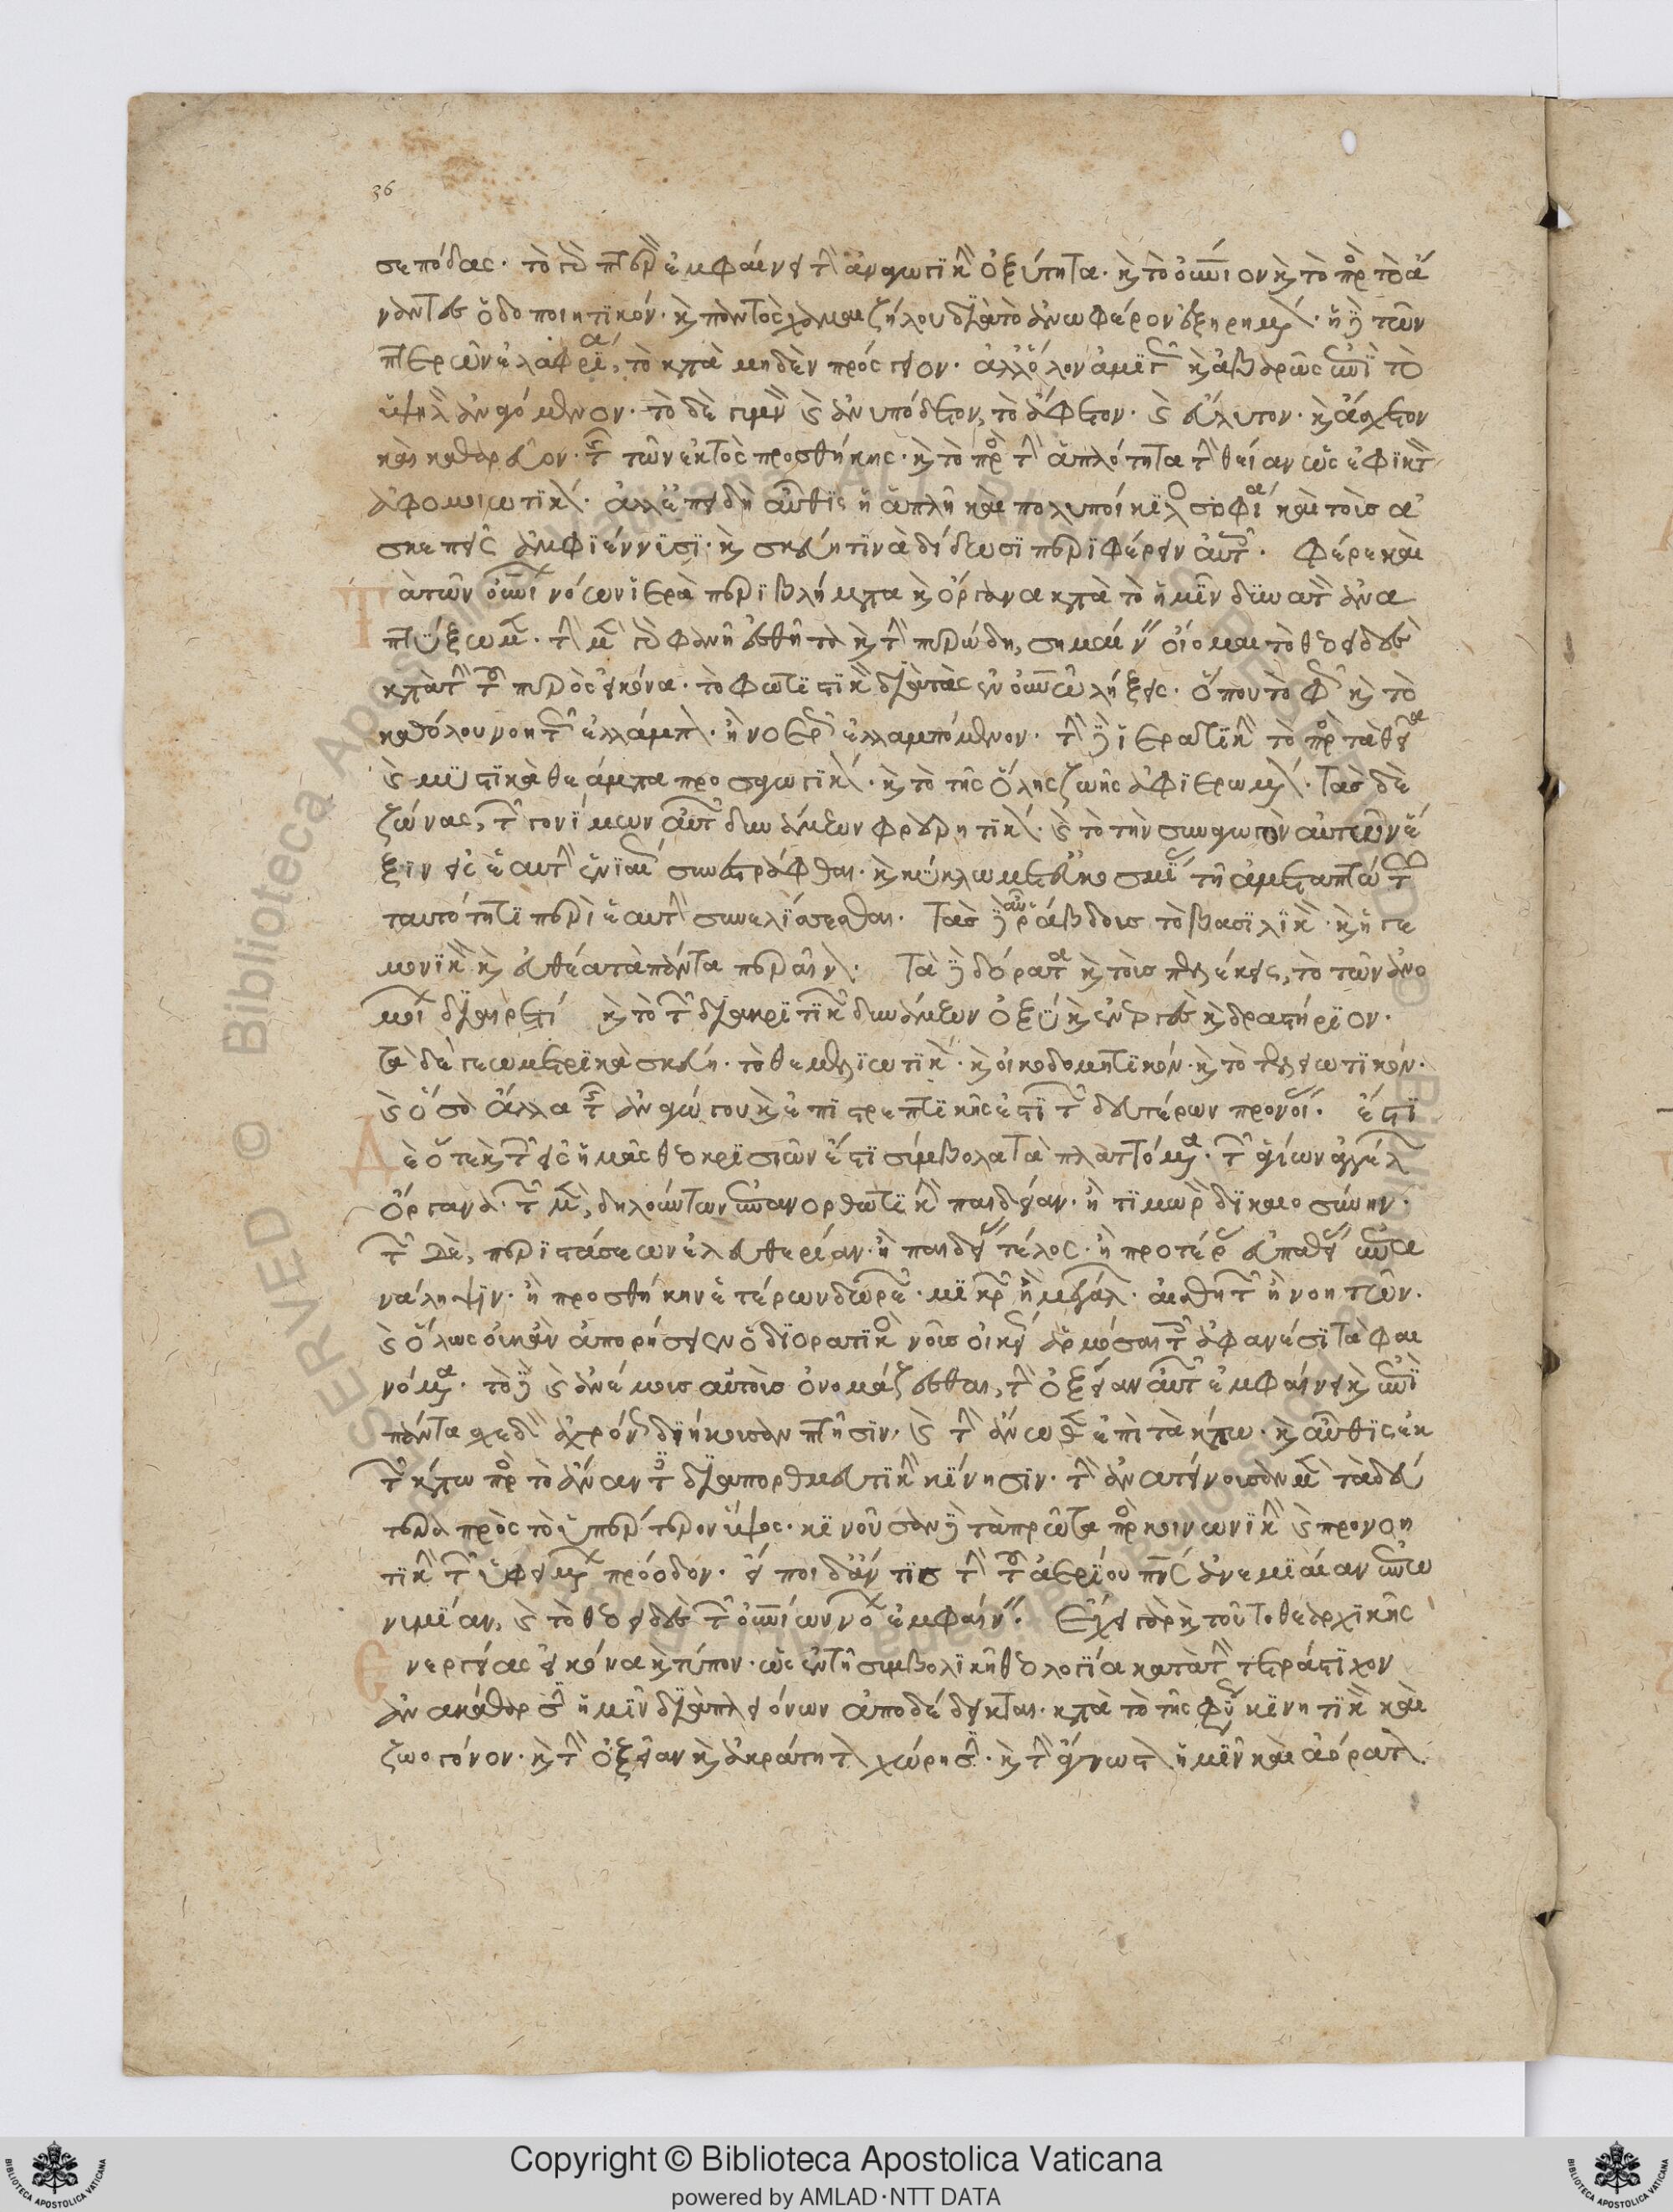 36
σε πόδας. τὸ γὰρ πτερὸν ἐμφαίνει τὴν ἀναγωγικὴν ὀξύτητα. καὶ τὸ οὐράνιον καὶ τὸ πρὸς τὸ ἄ
ναντες ὁδοποιητικόν. καὶ παντὸς χαμαιζήλου διὰ τὸ ἀνωφερὸν ἐξῃρημένον. ἡ δὲ τῶν
πτερῶν ἐλαφρία, τὸ κατὰ μηδὲν πρόσγειον. ἀλλ' ὅλον ἀμιγῶς καὶ ἀβαρῶς ἐπὶ τὸ
ὑψηλὸν ἀναγόμενον. τὸ δὲ γυμνὸν καὶ ἀνυπόδετον, τὸ ἄφετον. καὶ εὔλυτον. καὶ ἄσχετον
καὶ καθαρεῦον. τῆς τῶν ἐκτὸς προσθήκης. καὶ τὸ πρὸς τὴν ἁπλότητα τὴν θείαν ὡς ἐφικτὸν
ἀφομοιωτικόν. ἀλλ' ἐπειδὴ αὖθις ἡ ἁπλῆ καὶ πολυποίκιλος σοφία καὶ τοὺς ἀ
σκεπεῖς ἀμφιέννυσι. καὶ σκεύη τινὰ δίδωσι περιφέρειν αὐτοῖς. Φέρε καὶ
Τὰ τῶν οὐρανίων νόων ἱερὰ περιβλήματα καὶ ὄργανα κατὰ τὸ ἡμῖν δυνατὸν ἀνα
πτύξωμεν. τὴν μὲν γὰρ φανὴν ἐσθῆτα καὶ τὴν πυρώδη, σημαίνειν οἴομαι τὸ θεοειδὲς
κατὰ τὴν τοῦ πυρὸς εἰκόνα. τὸ φωτιστικὸν διὰ τὰς ἐν οὐρανῷ λήξεις. ὅπου τὸ φῶς καὶ τὸ
καθόλου νοητῶς ἐλλάμπον. ἢ νοερῶς ἐλλαμπόμενον. τὴν δὲ ἱερατικὴν τὸ πρὸς τὰ θεῖα
καὶ μυστικὰ θεάματα προσαγωγικόν. καὶ τὸ τῆς ὅλης ζωῆς ἀφιερωμένον. Τὰς δὲ
ζώνας, τὴν τῶν γονίμων αὐτῶν δυνάμεων φρουρητικόν. καὶ τὸ τὴν συναγωγὸν αὐτῶν ἕ
ξιν εἰς ἑαυτὴν ἑνιαίως συνεστράφθαι. καὶ κύκλῳ μετ' εὐκοσμίας τῇ ἀμεταπτώτῳ
ταυτότητι περὶ ἑαυτὴν συνελίσσεσθαι. Τὰς δὲ ῥάβδους τὸ βασιλικὸν. καὶ ἡγε
μονικὸν καὶ εὐθέα τὰ πάντα περαῖνον. Τὰ δὲ δόρατα καὶ τοὺς πελέκεις, τὸ τῶν ἀνο
μοίων διαιρετικόν καὶ τὸ τῶν διακριτικῶν δυνάμεων ὀξὺ καὶ ἐνεργὲς καὶ δραστήριον.
τὰ δὲ γεωμετρικὰ σκεύη. τὸ θεμελιωτικὸν. καὶ οἰκοδομητικόν. καὶ τὸ τελειωτικόν.
καὶ ὅσα ἄλλα τῆς ἀναγώγου καὶ ἐπιστρεπτικῆς ἐστὶ τῶν δευτέρων προνοίας. ἔστι
Δὲ ὅτε καὶ τῶν εἰς ἡμᾶς θεοκρισιῶν ἐστὶ σύμβολα τὰ πλαττόμενα. τῶν ἁγίων ἀγγέλων
ὄργανα. τῶν μὲν, δηλούντων ἐπανορθωτικὴν παιδείαν. ἢ τιμωρὸν δικαιοσύνην.
τῶν δὲ, περιστάσεων ἐλευθερίαν. ἢ παιδείας τέλος. ἢ προτέρας εὐπαθείας ἐπα
νάληψιν. ἢ προσθήκην ἑτέρων δωρεῶν. μικρῶν ἢ μεγάλων. αἰσθητῶν ἢ νοητῶν.
καὶ ὅλως οὐκ ἂν ἀπορήσειεν ὁ διορατικὸς νοῦς οἰκείως ἁρμόσαι τοῖς ἀφανέσι τὰ φαι
νόμενα. τὸ δὲ καὶ ἀνέμους αὐτοὺς ὀνομάζεσθαι, τὴν ὀξεῖαν αὐτῶν ἐμφαίνει καὶ ἐπὶ
πάντα σχεδὸν ἀχρόνως διήκουσαν πτῆσιν, καὶ τὴν ἄνωθεν ἐπὶ τὰ κάτω. καὶ αὖθις ἐκ
τῶν κάτω πρὸς τὸ ἄναντες διαπορθμευτικὴν κίνησιν. τὴν ἀνατείνουσαν μὲν τὰ δεύ
τερα πρὸς τὸ ὑπέρτερον ὕψος. κινοῦσαν δὲ τὰ πρῶτα πρὸς κοινωνικὴν καὶ προνοη
τικὴν τῶν ὑφειμένων πρόοδον. εἴποι δ' ἄν τις τὴν τοῦ ἀερίου πνεύματος ἀνεμιαίαν ἐπω
νυμίαν, καὶ τὸ θεοειδὲς τῶν οὐρανίων νόων ἐμφαίνειν. Ἔχει γὰρ καὶ τοῦτο θεαρχικῆς
Ἐνεργείας εἰκόνα καὶ τύπον. ὡς ἐν τῇ συμβολικῇ θεολογίᾳ κατὰ τὴν τετράστιχον
ἀνακάθαρσιν ἡμῖν διὰ πλειόνων ἀποδέδεικται. κατὰ τὸ τῆς φύσεως κινητικὸν καὶ
ζωογόνον. καὶ τὴν ὀξεῖαν καὶ ἀκράτητον χώρησιν. καὶ τὴν ἄγνωστον ἡμῖν καὶ ἀόρατον.
Copyright © Biblioteca Apostolica Vaticana
powered by AMLAD·NTT DATA